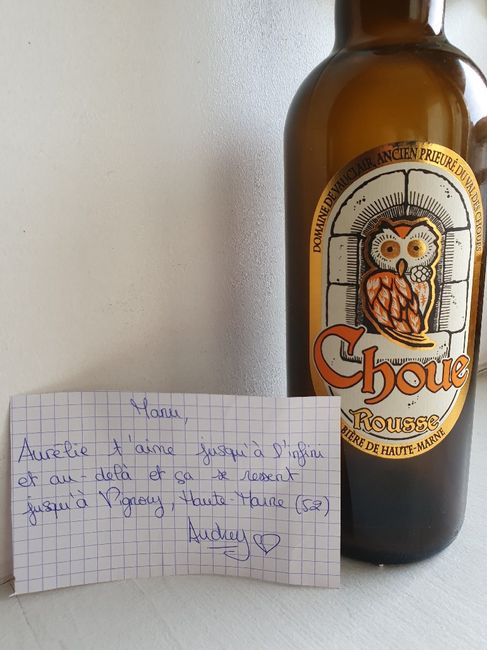 DOMAINE DE VAUCLAIR, ANCIEN PRIEURÉ DU VAL DES CHOUES
Choue
Rousse
BIÈRE DE HAUTE-MARNE
Manu,
Aurélie t'aime jusqu'à l'infini
et au-delà et ça se ressent
jusqu'à Vignory, Haute Marne (52)
Audrey